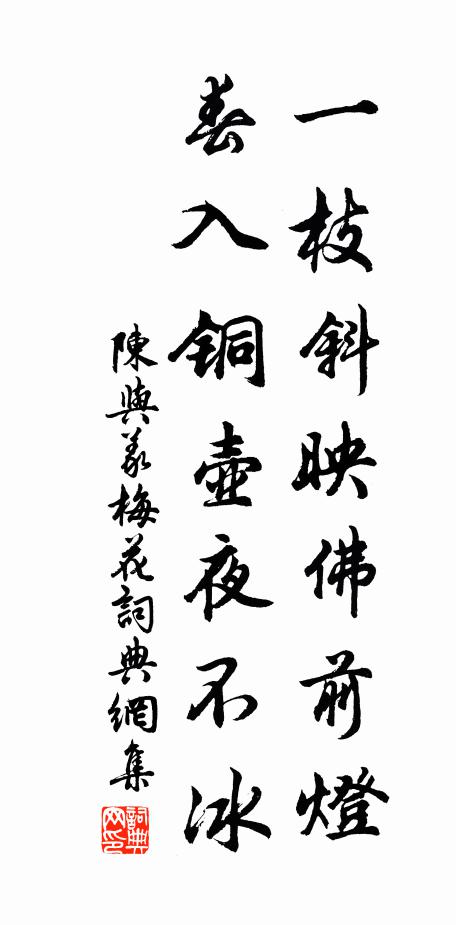 一枝斜映佛前燈
春入銅壺夜不冰
陳與義梅花詞典網集
詞典
网印